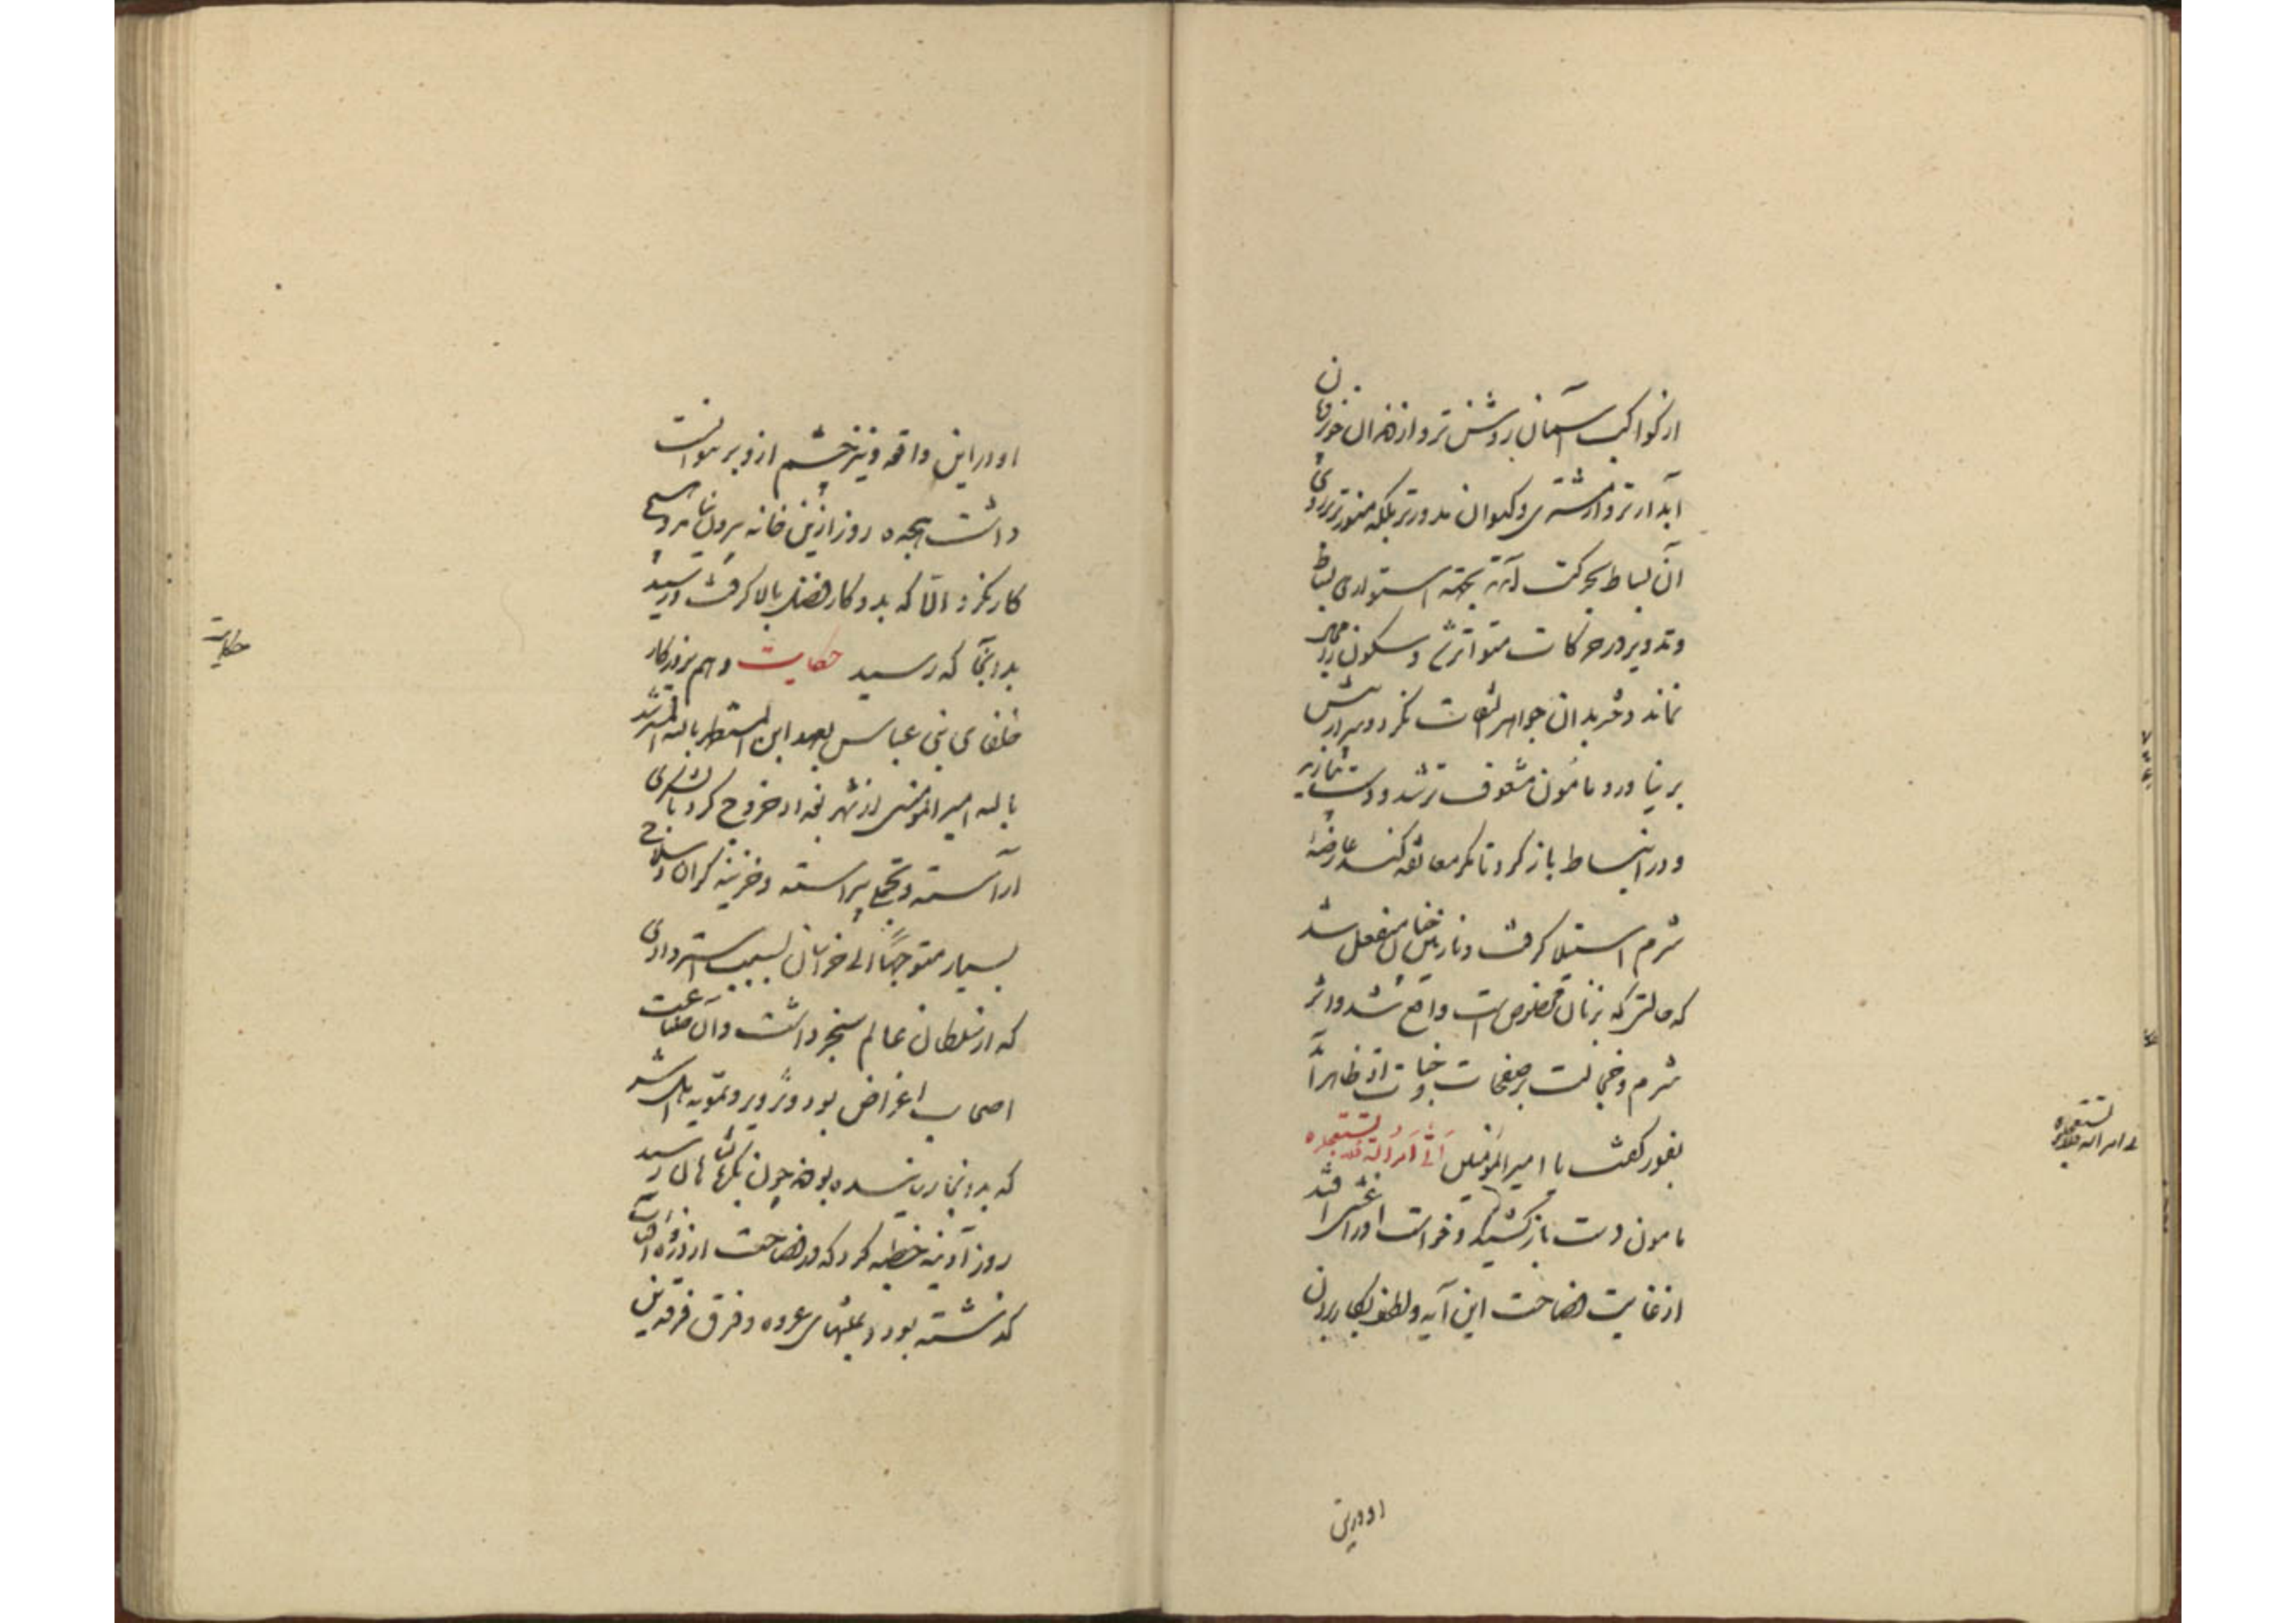 از کواکب آسمان روشن‌تر و از دهان خوبان
آبدارتر و از مشتری و کیوان مدورتر بلکه منورتر بر روی
آن بساط بحرکت آمد بجهة استوای بساط
و تدویر درر حرکات متواتر شد و سکون را مجال
نماند دختر بدان جواهر التفات نکرد و سر از پیش
بر نیاورد مامون مشعوف‌تر شد دست بیازید
و در انبساط باز کرد تا مگر معانقه کند عارضهٔ
شرم استیلا گرفت و نازنین چنان منفعل شد
که حالتی که بزنان مخصوص است واقع شد و اثر
شرم و خجالت بر صفحات وجنات او ظاهر
بفور گفت یا امیرالمؤمنین اَتی اَمرُ الله فلا تستعجلوه
مامون دست باز کشید و خواست او را غشی افتد
از غایت فصاحت این آیه و لطف بکار بردن
او درین
تستعجلوه
اتی امر الله فلا
او در این واقعه و نیز چشم ازو بر نتوانست
داشت هجده روز ازین خانه بیرون نیامد و بهیچ
کار نکرد الا که بدو کار فضل بالا گرفت و رسید
بدانجا که رسید حکایت و هم بروزگار
خلفای بنی عباس بعهد ابن المستظهر بالله المسترشد
بالله امیرالمومنین از شهر بغداد خروج کرد با لشکری
آراسته و تجملی پیراسته و خزینه گران و سلاح
بسیار متوجهاً الی خراسان بسبب استردادی
که از سلطان عالم سنجر داشت و آن صناعت
اصحاب اغراض بود و تزویر و تمویه اهل شر
که بدانجا رسانیده بودند چون بکرمانشاهان رسید
روز آدینه خطبه کرد که در فصاحت از ذروه آفتاب
گذشته بود و بمنتهای عروه و فرق فرقدین
حکایت